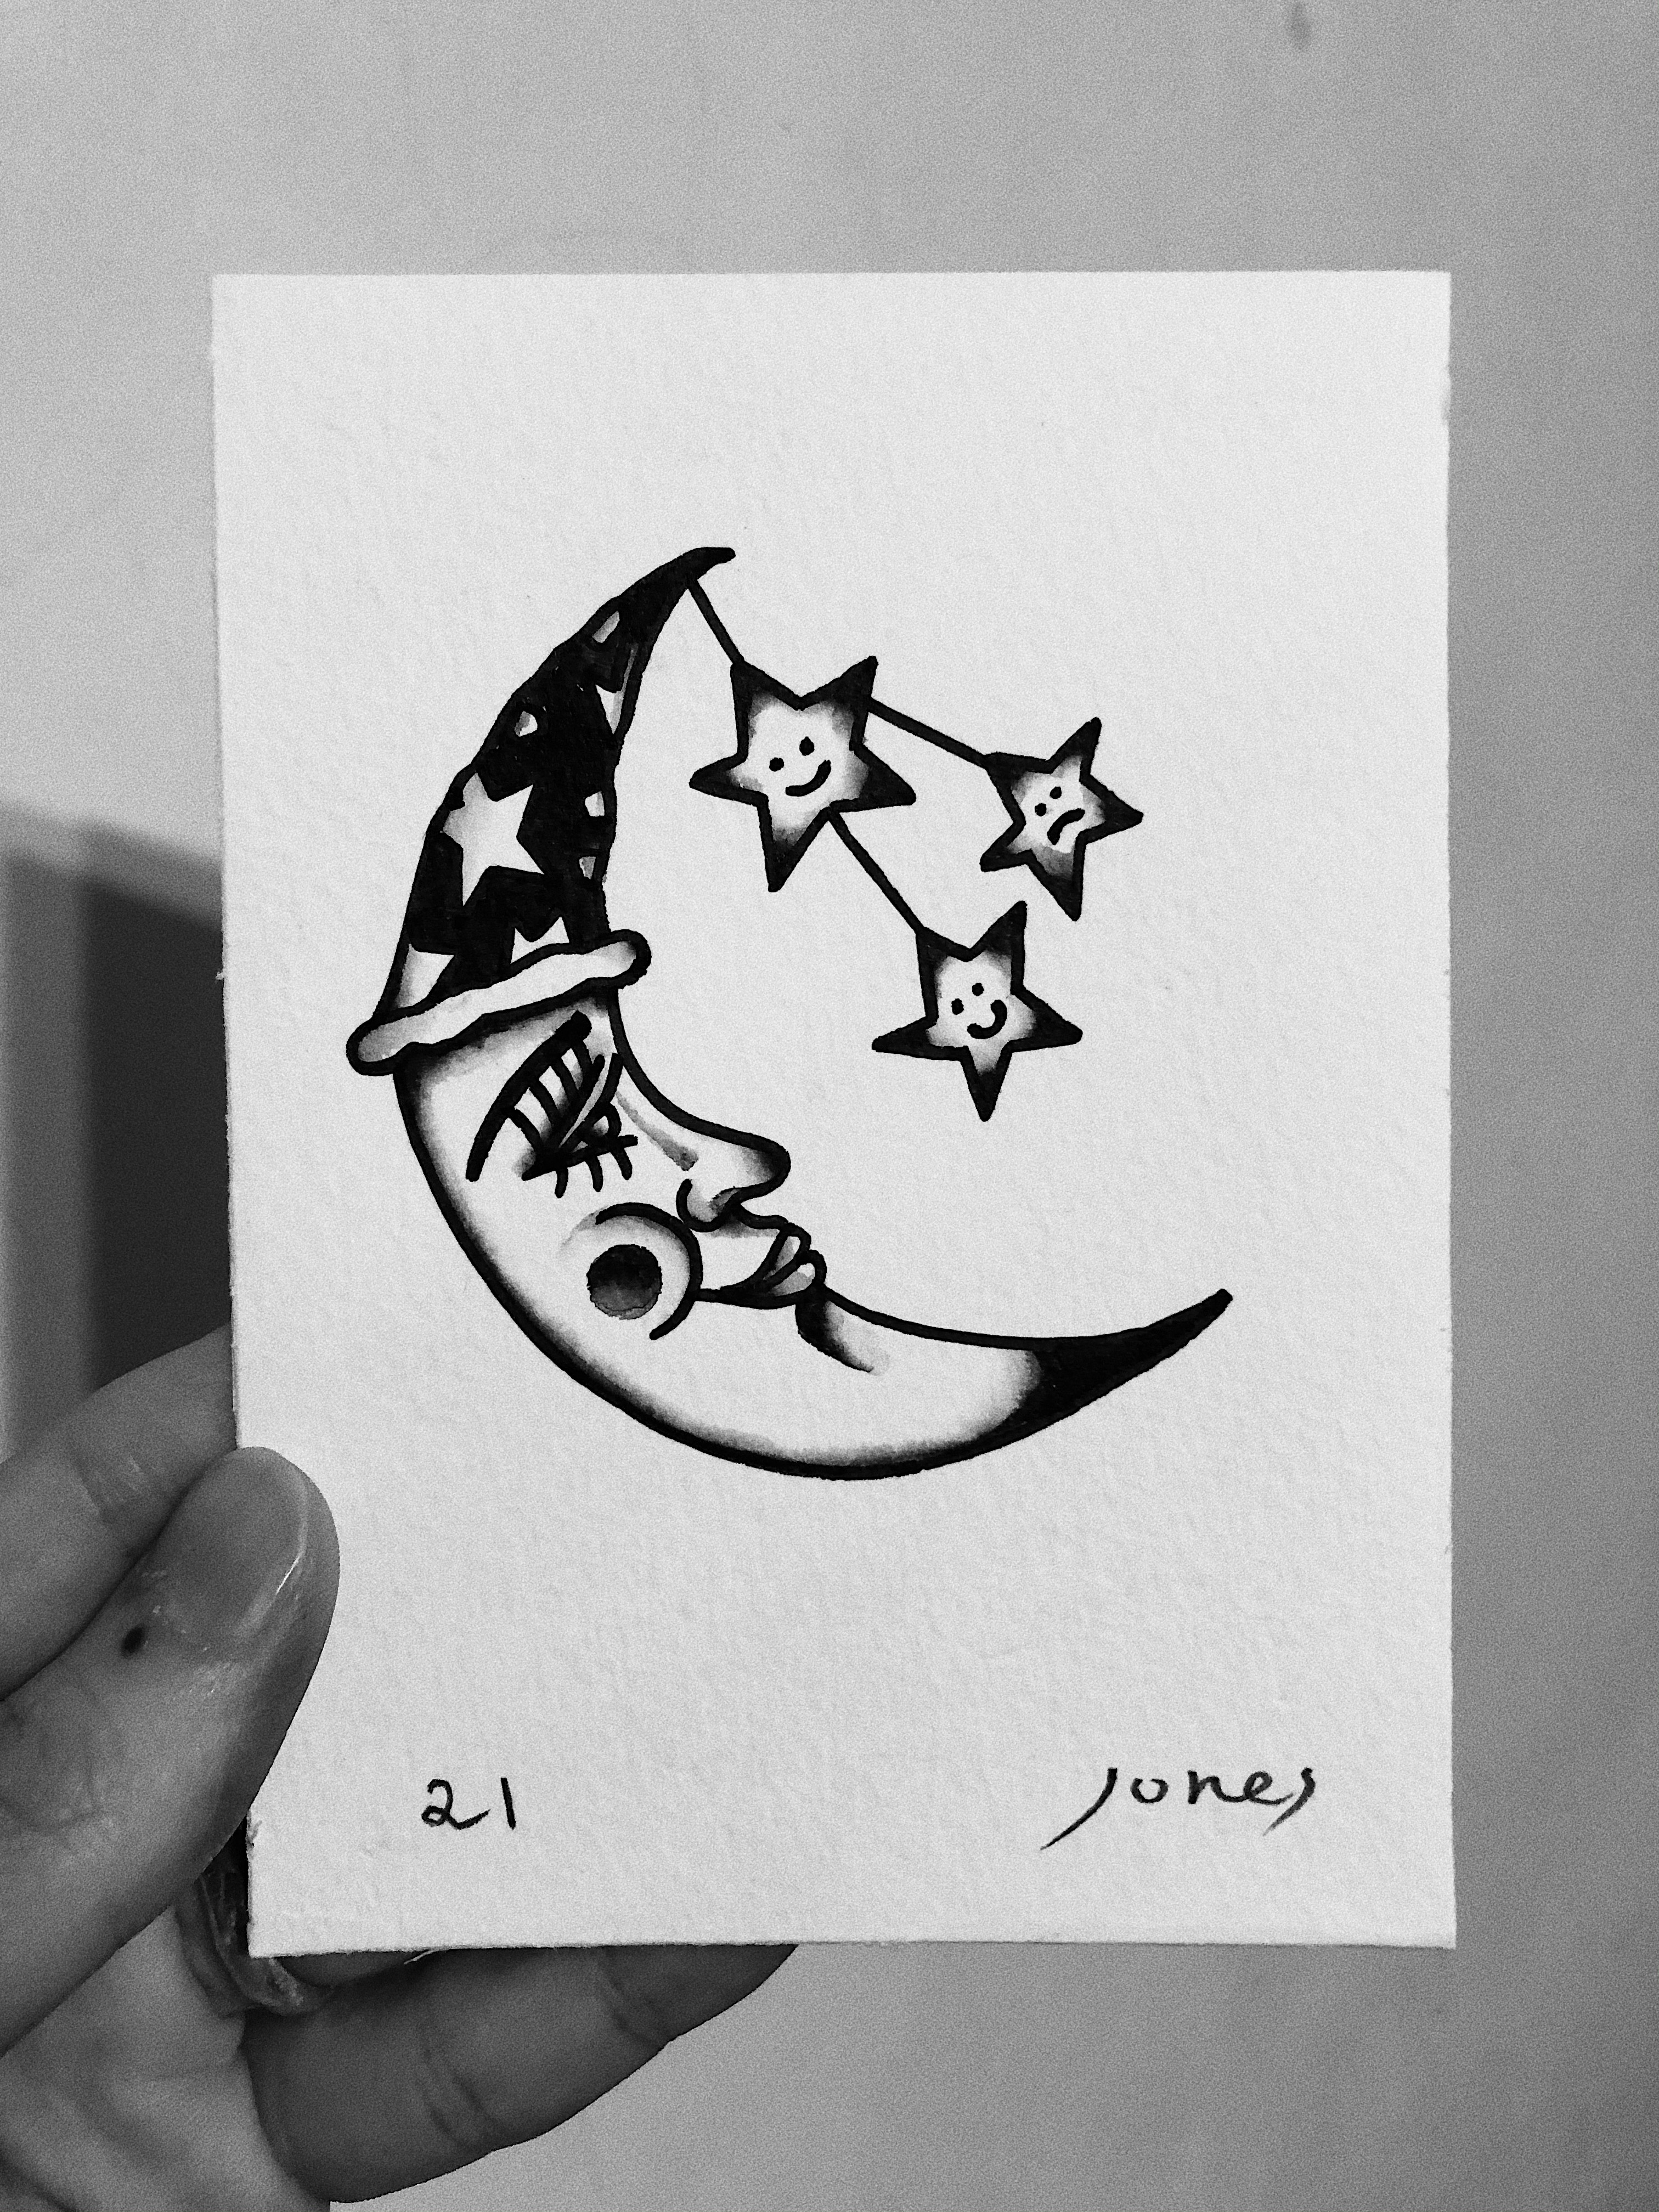 21
Jones